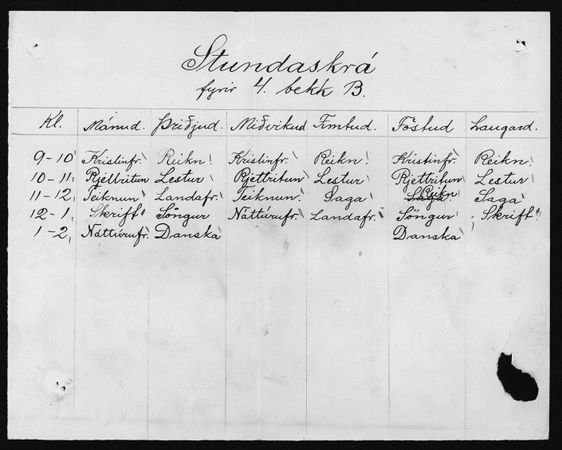 Stundaskrá
fyrir 4. bekk B.
Kl. Mánud. Þriðjud. Miðvikud. Fimtud. Föstud. Laugard.
9-10 Kristinfr. Reikn. Kristinfr. Reikn. Kristinfr. Reikn.
10-11 Rjettritun Lestur Rjettritun Lestur Rjettritun Lestur
11-12 Teiknun Landafr. Teiknun. Saga Reikn Saga
12-1 Skrift Söngur Náttúrufr. Landafr. Söngur Skrift
1-2 Náttúrufr. Danska Danska